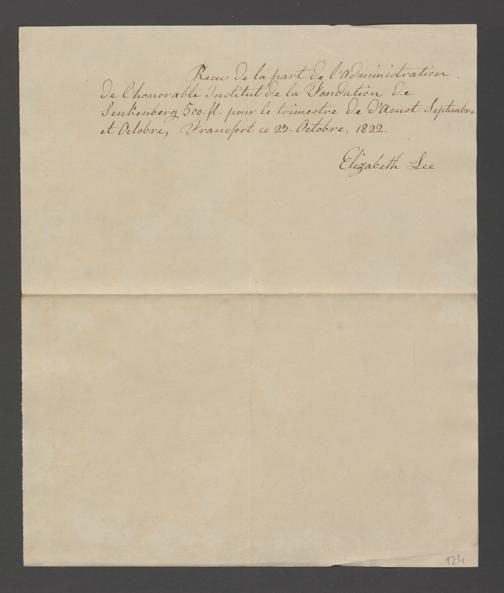 Recu de la part de l'administration
de l'honorable Institut de la Fondation de
Senkenberg 500 fl. pour le trimestre de d'Aoust Septembre
et Octobre, Francfort ce 23. Octobre, 1822.
Elizabeth Lee
124